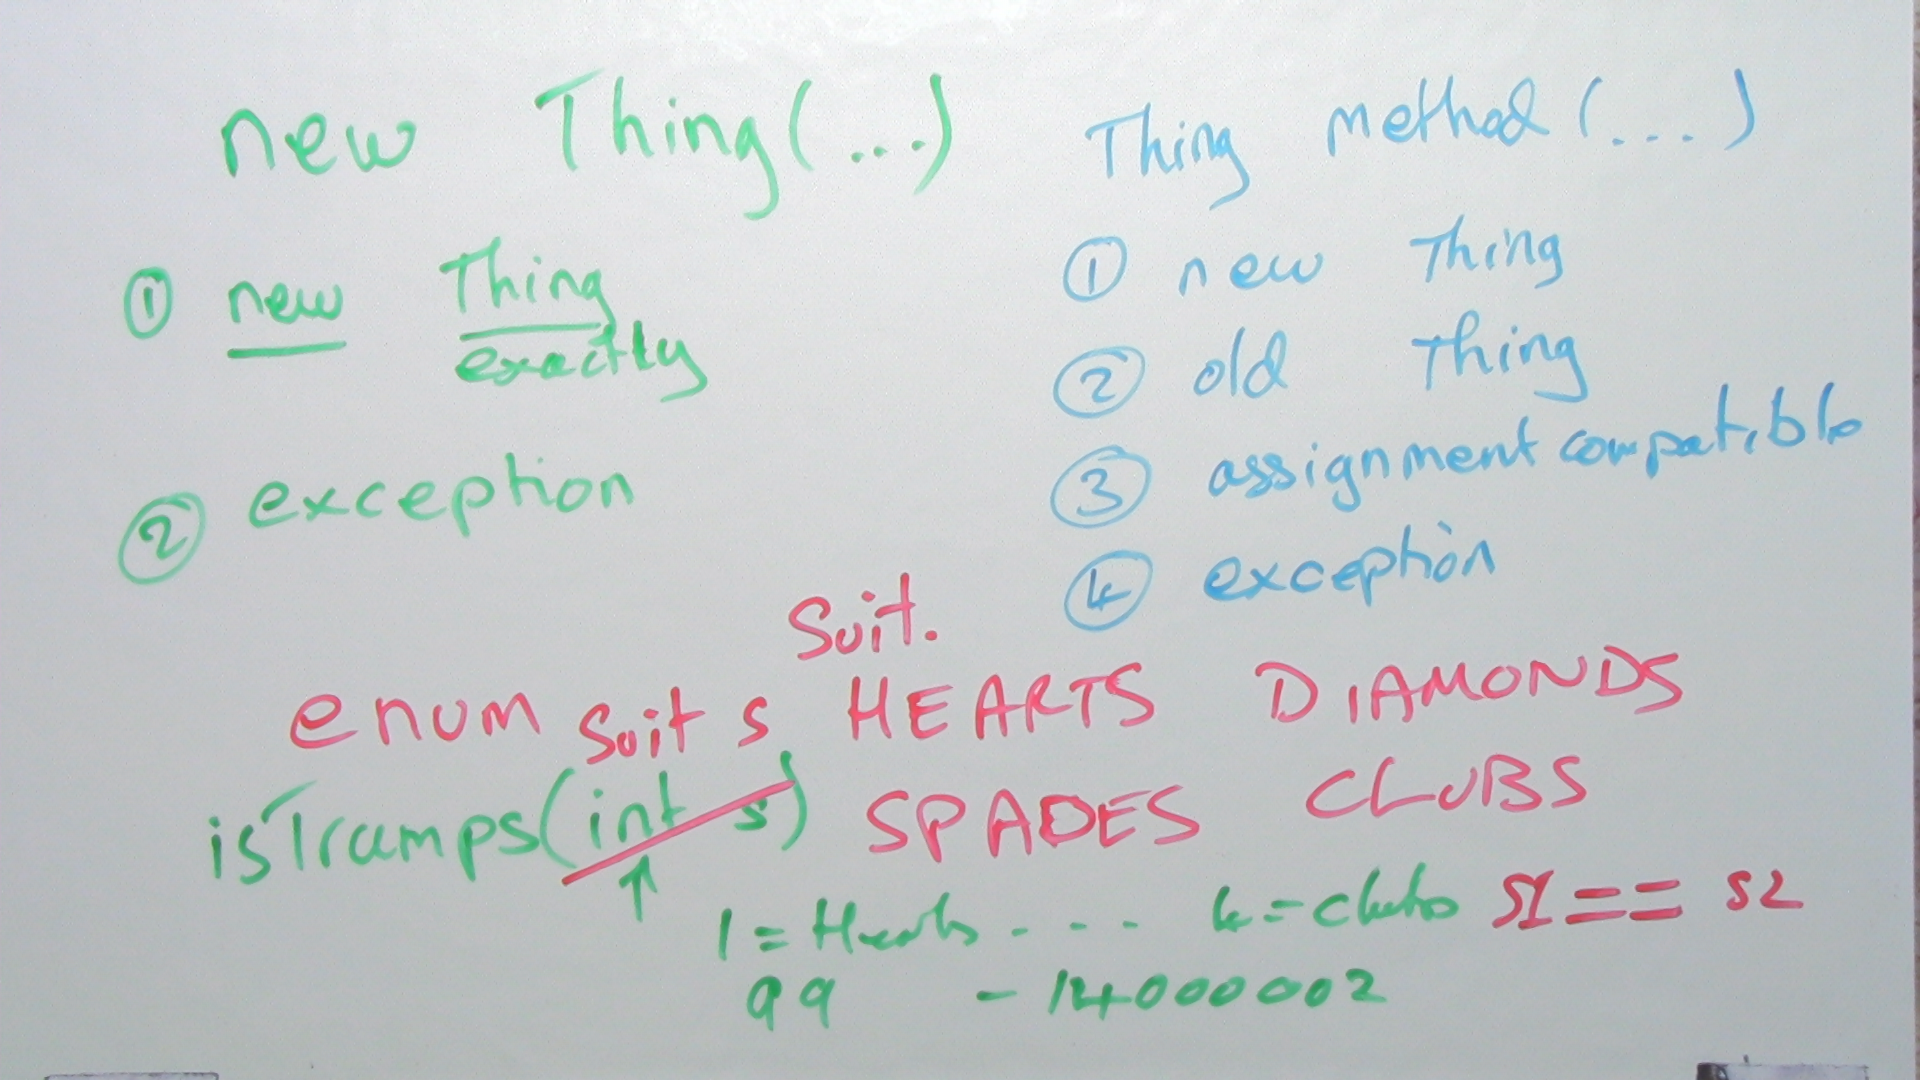 new Thing(...)
① new Thing
exactly
② exception
Thing method(...)
① new Thing
② old Thing
③ assignment compatible
④ exception
Suit.
enum Suit s HEARTS DIAMONDS
isTrumps(int s) SPADES CLUBS
1 = Hearts - - - 4 = clubs S1 == S2
99 -14000002